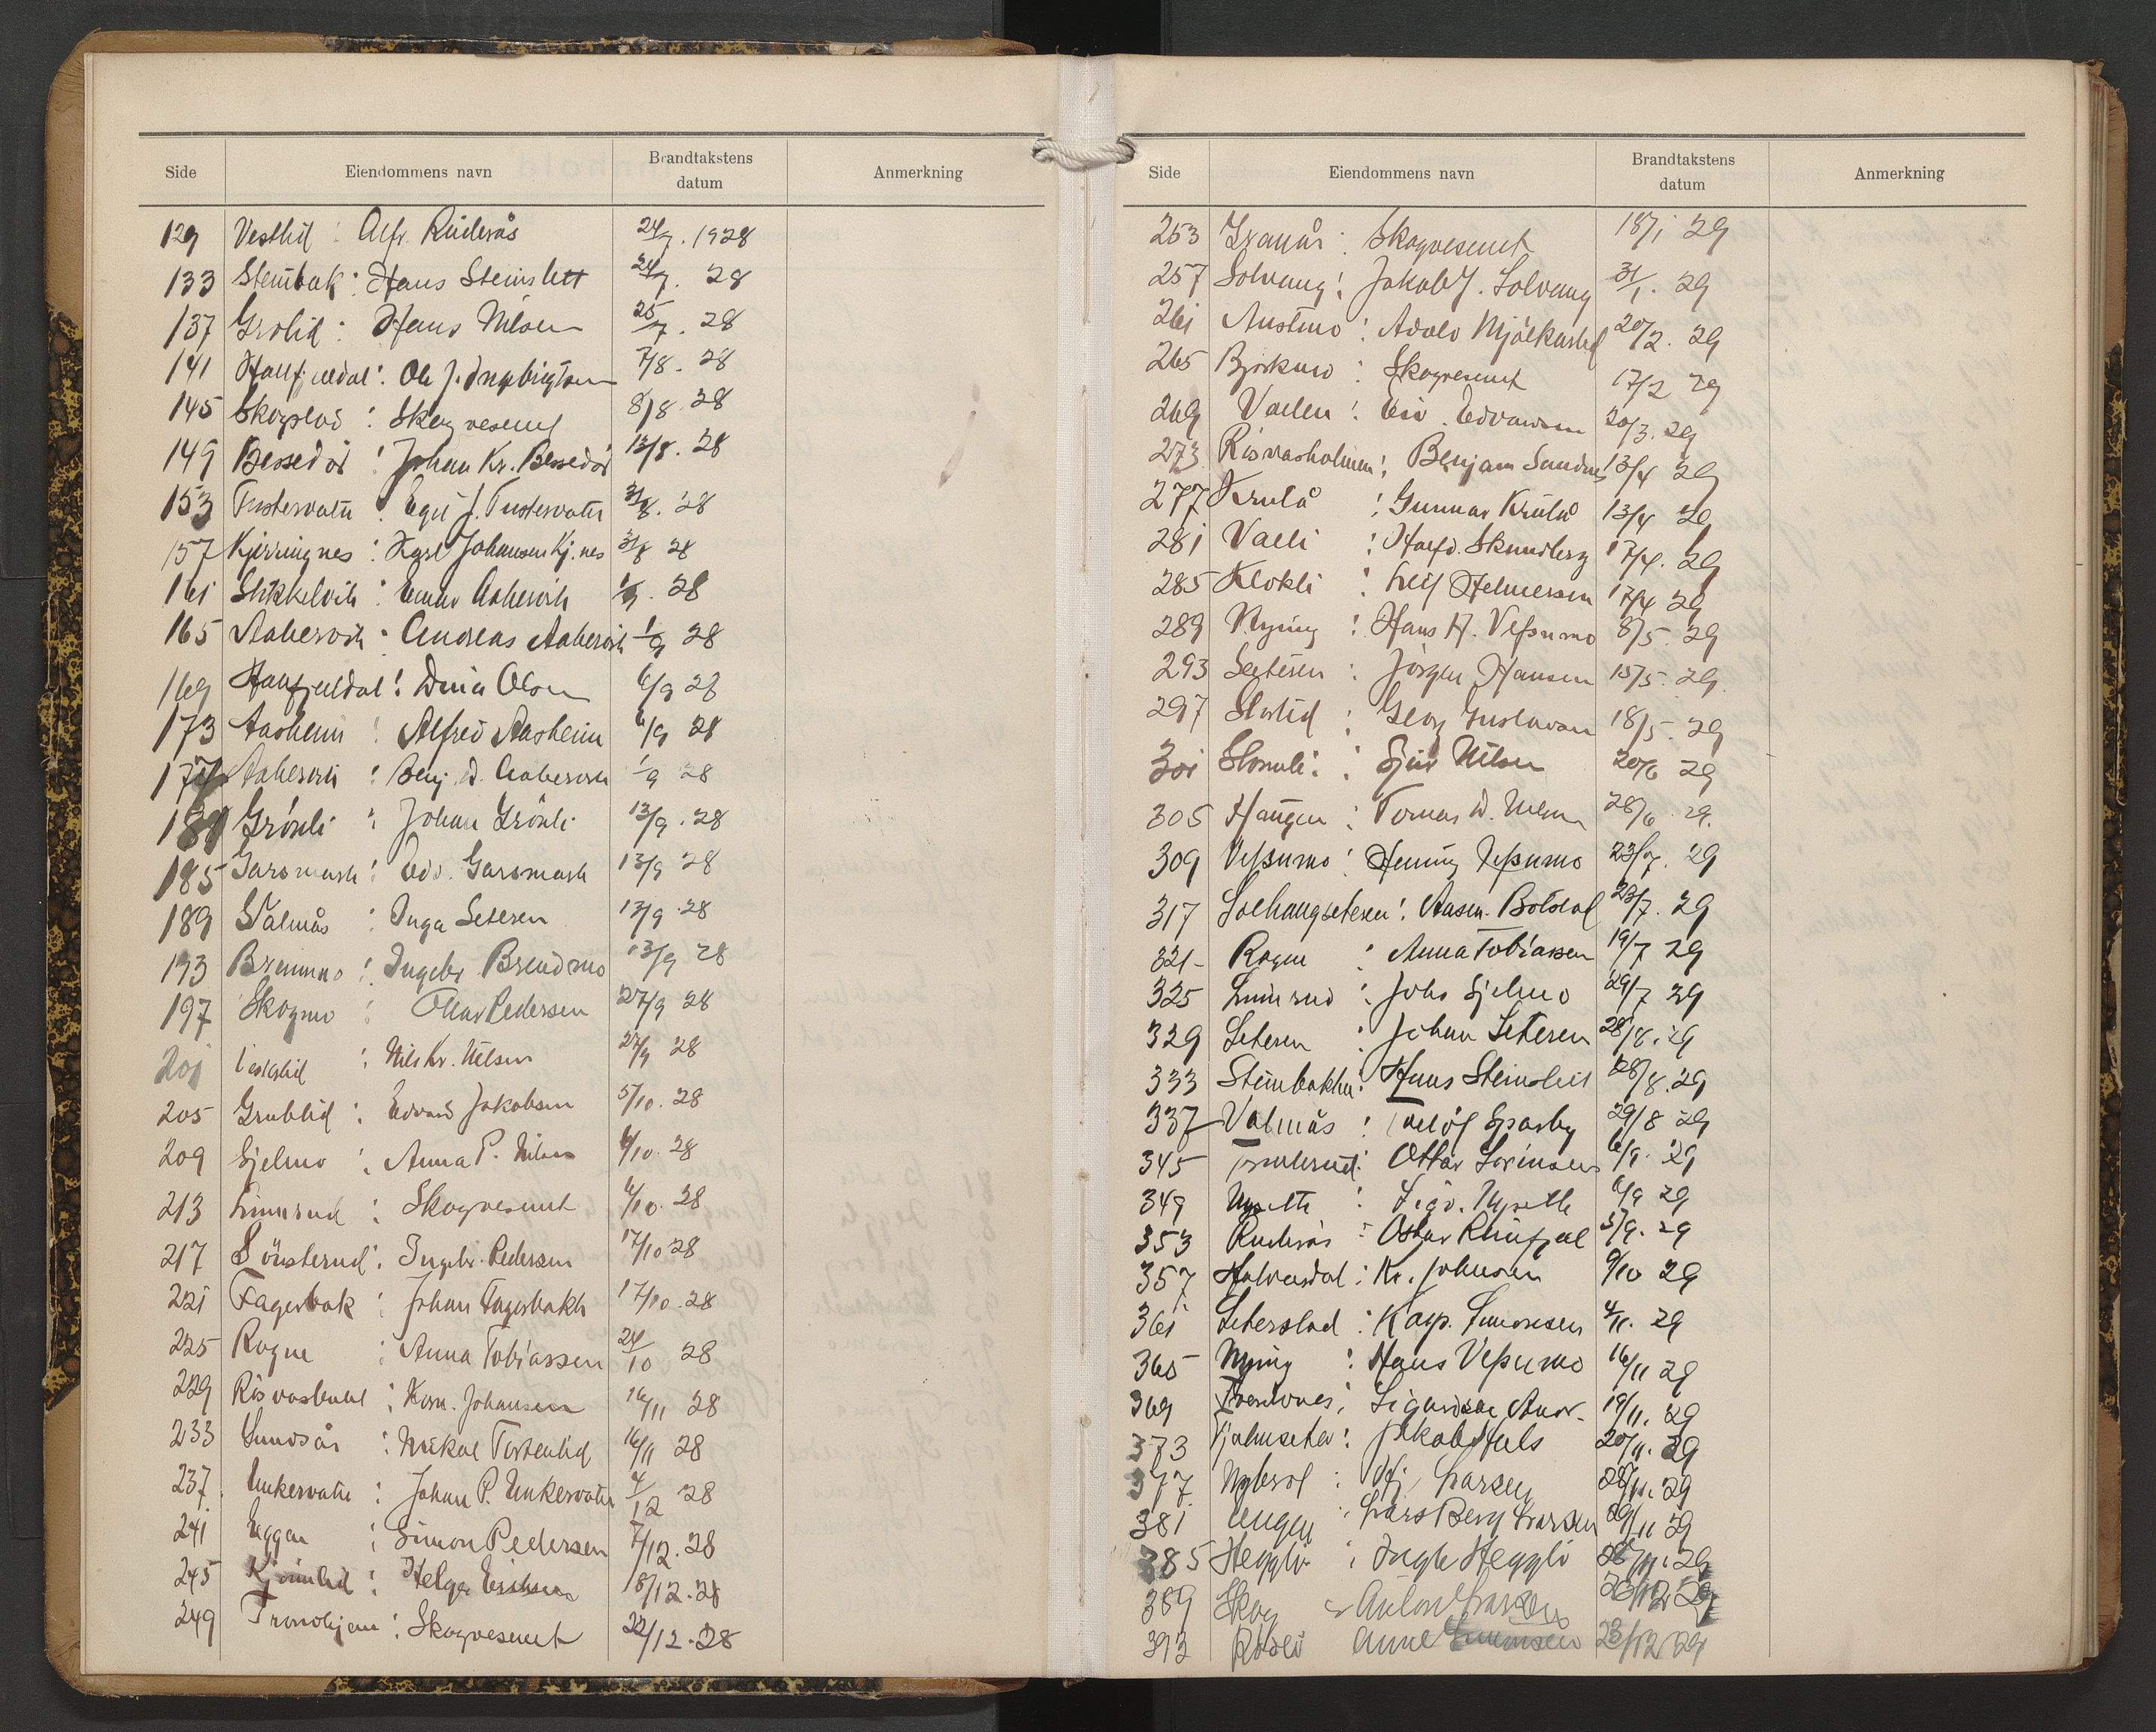 Side Eiendommens navn Brandtakstens datum Anmerkning
129 Vestlid : Alfr. Ruderås 24/7. 1928
133 Steinbak : Hans Steinslett 24/7. 28
137 Grolid : Hans Nilsen 25/7. 28
141 Hatfjeldal : Ole J. Ingebrigtsen 7/8. 28
145 Skogplas : Skogvesenet 8/8. 28
149 Bessedør : Johan Kr. Bessedør 13/8. 28
153 Tustervatn : Egil J. Tustervatn 31/8. 28
157 Kjerringnes : Karl Johansen Kj.nes 31/8 28
161 Stikkelvik : Einar Aakervik 1/9. 28
165 Aakervik : Andreas Aakervik 1/9 28
169 Hatfjeldal : Dina Olsen 6/9 28
173 Aasheim : Alfred Aasheim 6/9 28
177 Aakervik : Benj. D. Aakervik 1/9 28
181 Grönli : Johan Grönli 13/9. 28
185 Garsmark : Edv. Garsmark 13/9 28
189 Valmås : Inga Seteren 13/9 28
193 Brennmo : Ingebr. Brendmo 13/9 28
197 Skogmo : Olav Pedersen 27/9 28
201 Vestrlid : Nils Kr. Nilsen 27/9 28
205 Grublid : Edvard Jakobsen 5/10. 28
209 Sjelmo : Anna P. Nilsen 6/10. 28
213 Linnrud : Skogvesenet 6/10. 28
217 Sönsterud : Ingebr. Pedersen 17/10 28
221 Fagerbak : Johan Fagerbakk 17/10. 28
225 Rogne : Anna Tobiassen 24/10 28
229 Risvasbukt : Korn. Johansen 16/11 28
233 Sundsås : Mikal Tortenlid 16/11 28
237 Unkervatn : Johan P. Unkervatn 4/12 28
241 Eggen : Simon Pedersen 7/12. 28
245 : Helga 18/12. 28
249 Tronohjem : Skogvesenet 22/12. 28
Side Eiendommens navn Brandtakstens datum Anmerkning
253 Granås : Skogvesenet 18/1 29
257 Solvang : Jakob J. Solvang 31/1. 29
261 Austmo : Adolv Mjölkarlid 20/2. 29
265 Björkmo : Skogvesenet 17/2 29
269 Vollen : Eiv. Edvardsen 20/3. 29
273 Risvasholmen : Benjam Sundnes 13/4 29
277 Krutå : Gunnar Krutå 13/4 29
281 Valli : Hallf. Skundberg 17/4. 29
285 Klokli : Leif Helmersen 17/4 29
289 Nyring : Hans A. Vefsnmo 8/5. 29
293 Seteren : Jörgen Hansen 15/5. 29
297 Storlid : Georg Gustavsen 18/5. 29
301 Stormli : Ejnar Nilsen 20/6 29
305 Haugen : Tomas D. Nilsen 28/6. 29.
309 Vefsnmo : Henning Vefsnmo 23/7. 29
317 : Aasm. Botolval 23/7. 29
321- Rogne : Anna Tobiassen 19/7 29
325 Linnrud : Johs Sjelmo 29/7 29
329 Seteren : Johan Seteren 28/8. 29
333 Steinbakken : Hans Steinslett 28/8. 29
337 Valmås : Sparby 29/8 29
345 : Ottar Sörensen 6/9. 29
349 Nysett : Sigv. Nysett 6/9 29
353 Ruderås : Oskar 5/9. 29
357 Halvardal : Kr. Johnsen 9/10 29
361 Seterstad : Kasp. Simonsen 4/11. 29
365 Nyring : Hans Vefsnmo 16/11 29
369 : Sigurd Andr. 19/11. 29
373 : Jakob Juls 20/11. 29
377 : Larsen 28/11. 29
381 : Lars Berg Larsen 29/11 29
385 Hegglie : Hegglie 28/11. 29
389 Skog : Anton Larsen 23/12 29
393 Röset Anne 23/12 29